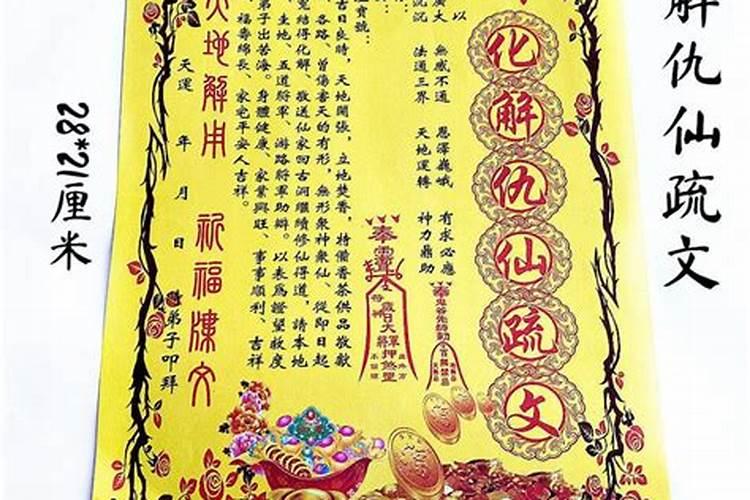 解仇仙疏文
化解仇仙疏文
以
廣大 無感不通 恩澤巍峨 有求必應
沉沉 法通三界 天地運轉 神力鼎助
寶號：
吉日良時，天地開張，立地焚香，特備香茶供品敬獻
、各路、曾傷害天的有形，無形衆神衆仙、從即日起
冤結得化解、敬送仙家回古洞繼續修仙得道，請本地
、土地、五道將軍、游路將軍助辯。以表爲證望敬度
弟子出苦海。身體健康、家業興旺、事事順利、吉祥
福壽綿長、家宅平安人吉祥。
奉
天地解用 祈福牒文
天運 年 月 日 弟子叩拜
28*21厘米